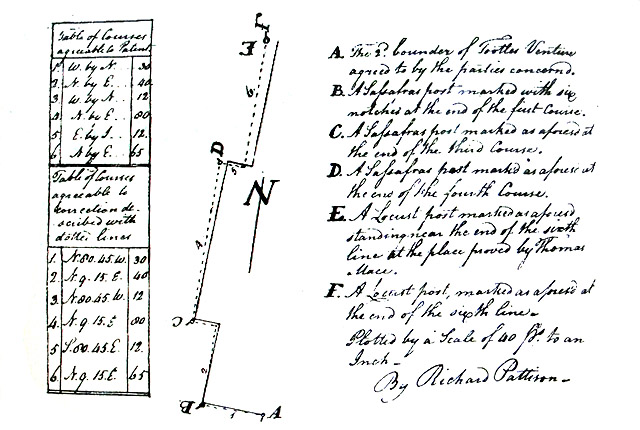 Table of Courses
agreeable to Patent
1 W. by N. 30
2 N. by E. 40
3 W. by N. 12
4 N. by E. 80
5 E. by S. 12.
6 N by E. 65
Table of Courses
agreeable to
correction de-
scribed with
dotted lines
1. N.80.45 W. 30
2. N.9.15.E 40
3. N.80.45.W. 12
4. N.9.15.E 80
5 S.80.45.E. 12.
6. N.9.15.E. 65
F
E
6
D
5
N
4
C
3
2
B
1
A
A. The 2d. bounder of Tootles Venture
agreed to by the parties concernd.
B. A Sassafras post marked with six
notches at the end of the first Course.
C. A Sassafras post marked as aforesd at
the end of the third Course.
D. A Sassafras post marked as aforesd at
the end of the fourth Course.
E. A Locust post marked as aforesd
standing near the end of the sixth
line at the place proved by Thomas
Mace.
F. A Locust post, marked as aforesd at
the end of the sixth line.
Plotted by a Scale of 40 ps. to an
Inch
By Richard Pattison